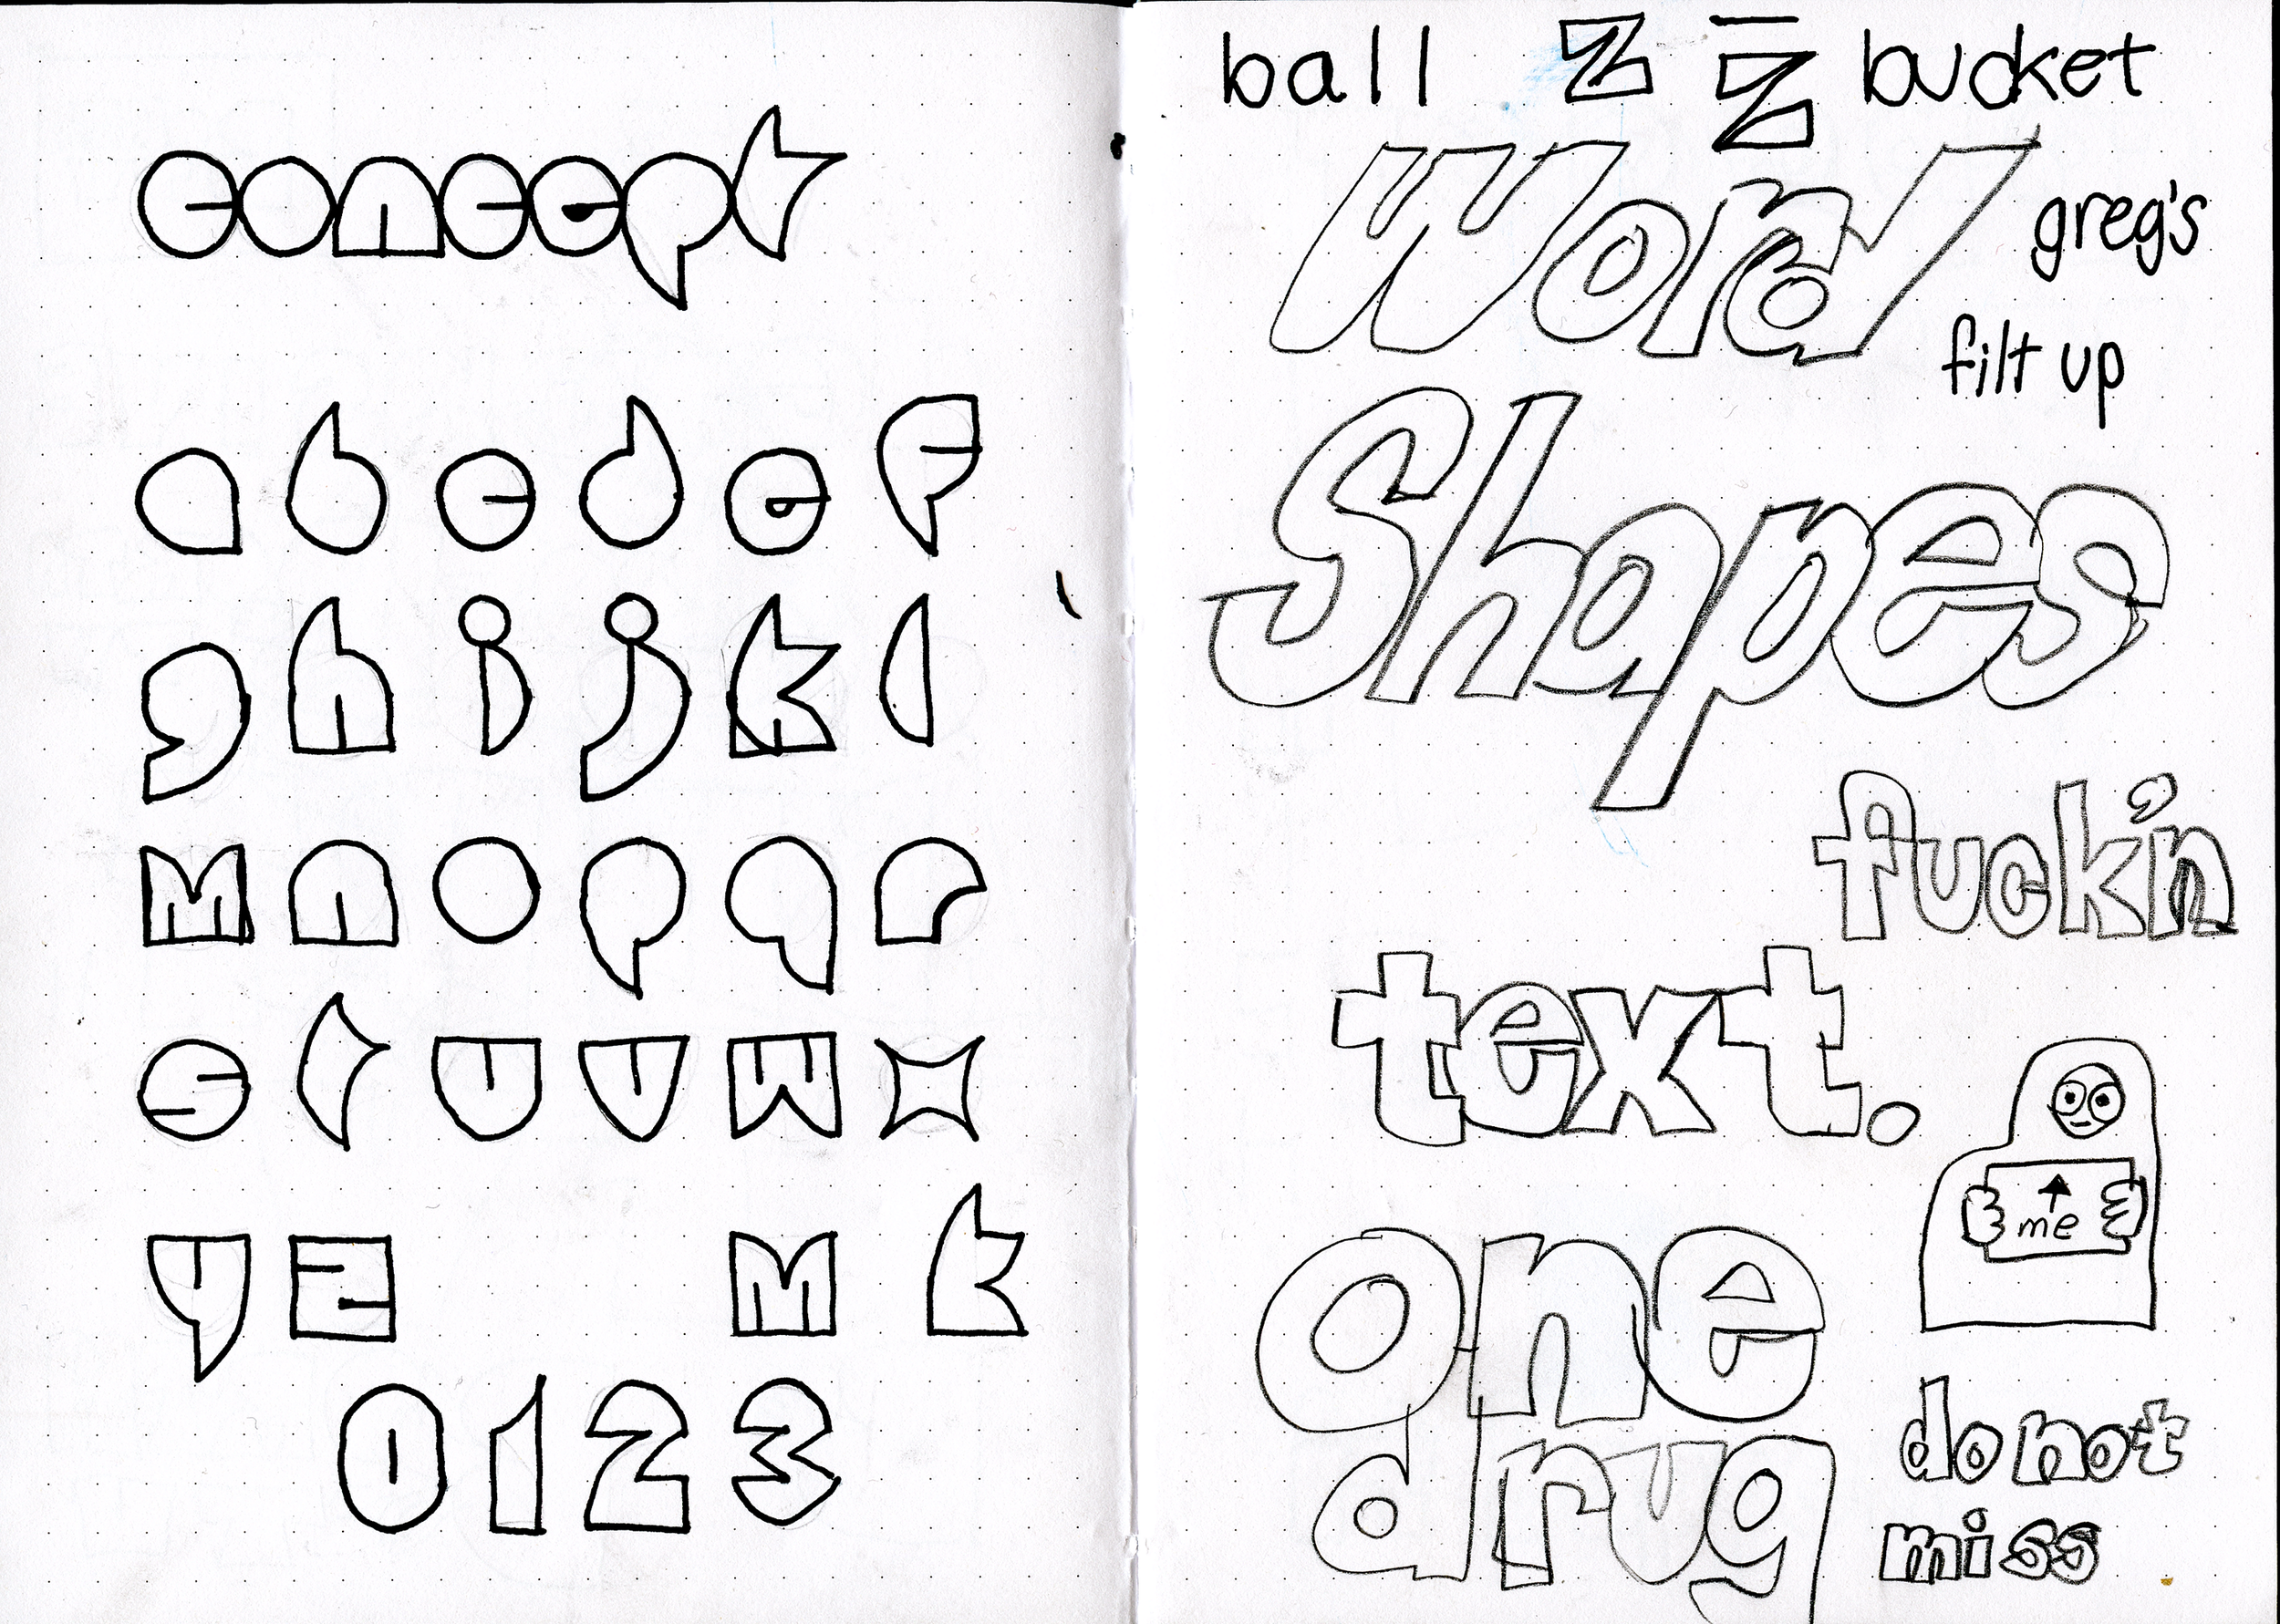 concept
a b c d e f
g h i j k l
m n o p q r
s t u v w x
y z m k
0 1 2 3
ball z z bucket
Word
greg's
filt up
Shapes
fuck'n
text.
me
one
drug
do not
miss